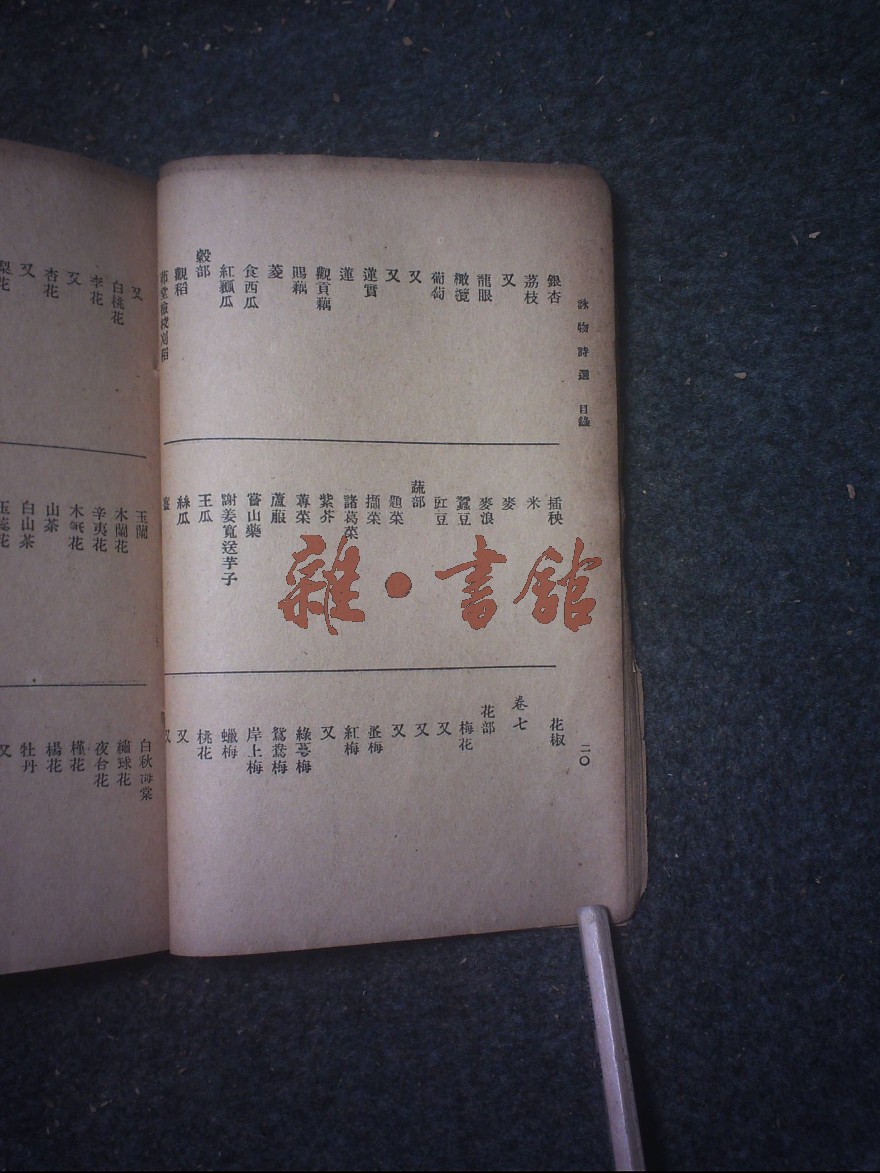 詠物詩選 目錄
二〇
銀杏
荔枝
又
龍眼
橄欖
葡萄
又
又
蓮實
蓮
觀貢藕
賜藕
菱
食西瓜
紅瓤瓜
穀部
觀稻
插秧
米
麥
麥浪
蠶豆
豇豆
蔬部
題菜
擷菜
諸葛菜
紫芥
蓴菜
蘆菔
嘗山藥
謝姜寬送芋子
王瓜
絲瓜
薑
花椒
卷七
花部
梅花
又
又
又
紅梅
又
綠萼梅
鴛鴦梅
岸上梅
蠟梅
桃花
又
又
又
白桃花
李花
又
杏花
又
梨花
玉蘭
木蘭花
辛夷花
木筆花
山茶
白山茶
玉蕊花
白秋海棠
繡球花
夜合花
槿花
楊花
牡丹
又
雜·書館